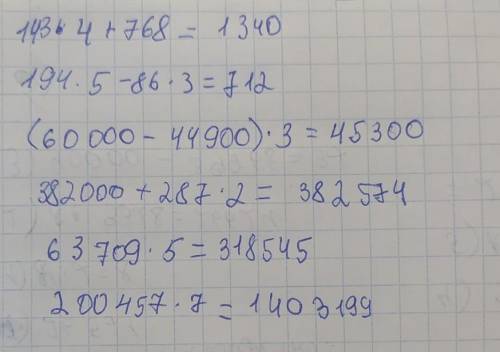 143 · 4 + 768 = 1340
194 · 5 - 86 · 3 = 712
(60 000 - 44900) · 3 = 45300
382000 + 287 · 2 = 382 574
63 709 · 5 = 318545
200457 · 7 = 1403199